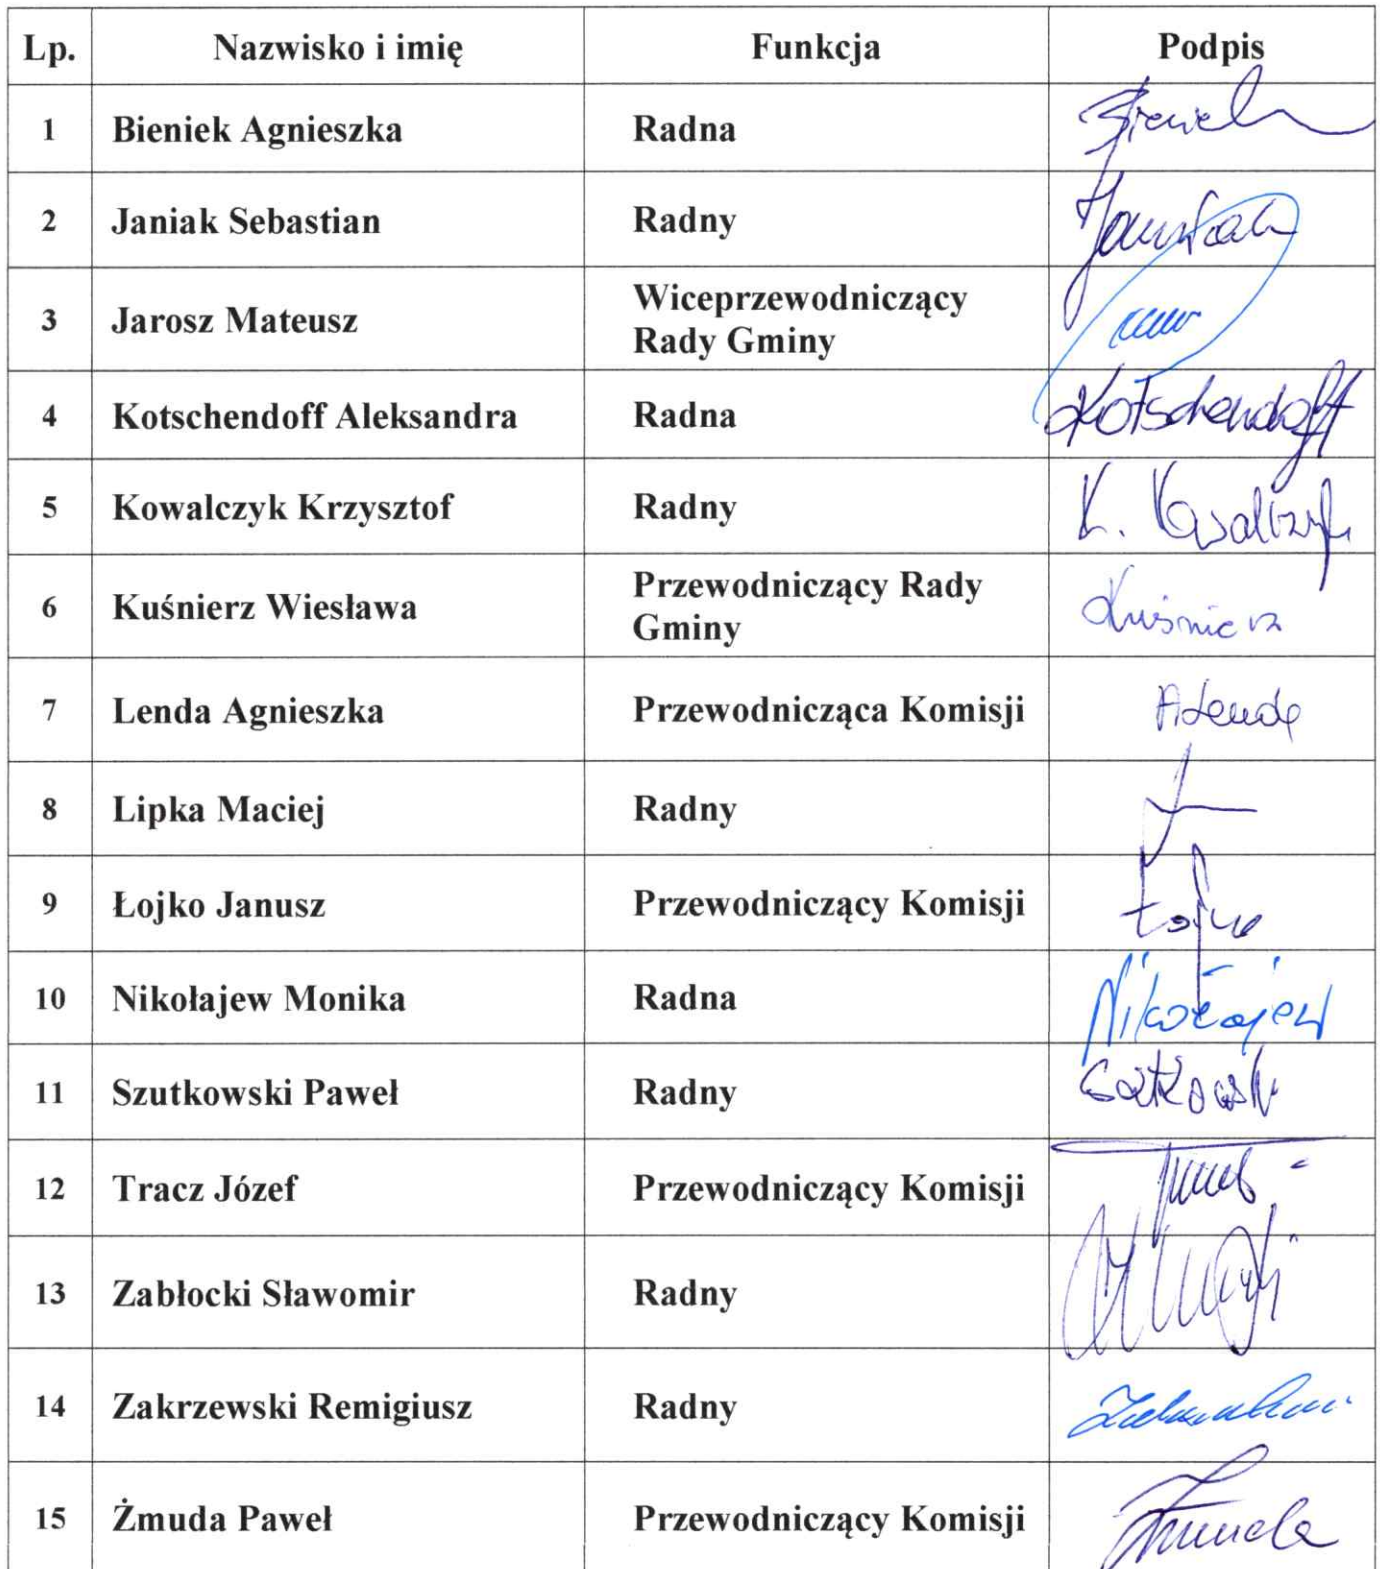 Lp. Nazwisko i imię Funkcja Podpis
1 Bieniek Agnieszka Radna
2 Janiak Sebastian Radny
3 Jarosz Mateusz Wiceprzewodniczący
Rady Gminy
4 Kotschendoff Aleksandra Radna Kotschendoff
5 Kowalczyk Krzysztof Radny K. Kowalczyk
6 Kuśnierz Wiesława Przewodniczący Rady
Gminy Kuśnierz
7 Lenda Agnieszka Przewodnicząca Komisji A Lenda
8 Lipka Maciej Radny
9 Łojko Janusz Przewodniczący Komisji
10 Nikołajew Monika Radna Nikołajew
11 Szutkowski Paweł Radny
12 Tracz Józef Przewodniczący Komisji
13 Zabłocki Sławomir Radny
14 Zakrzewski Remigiusz Radny
15 Żmuda Paweł Przewodniczący Komisji